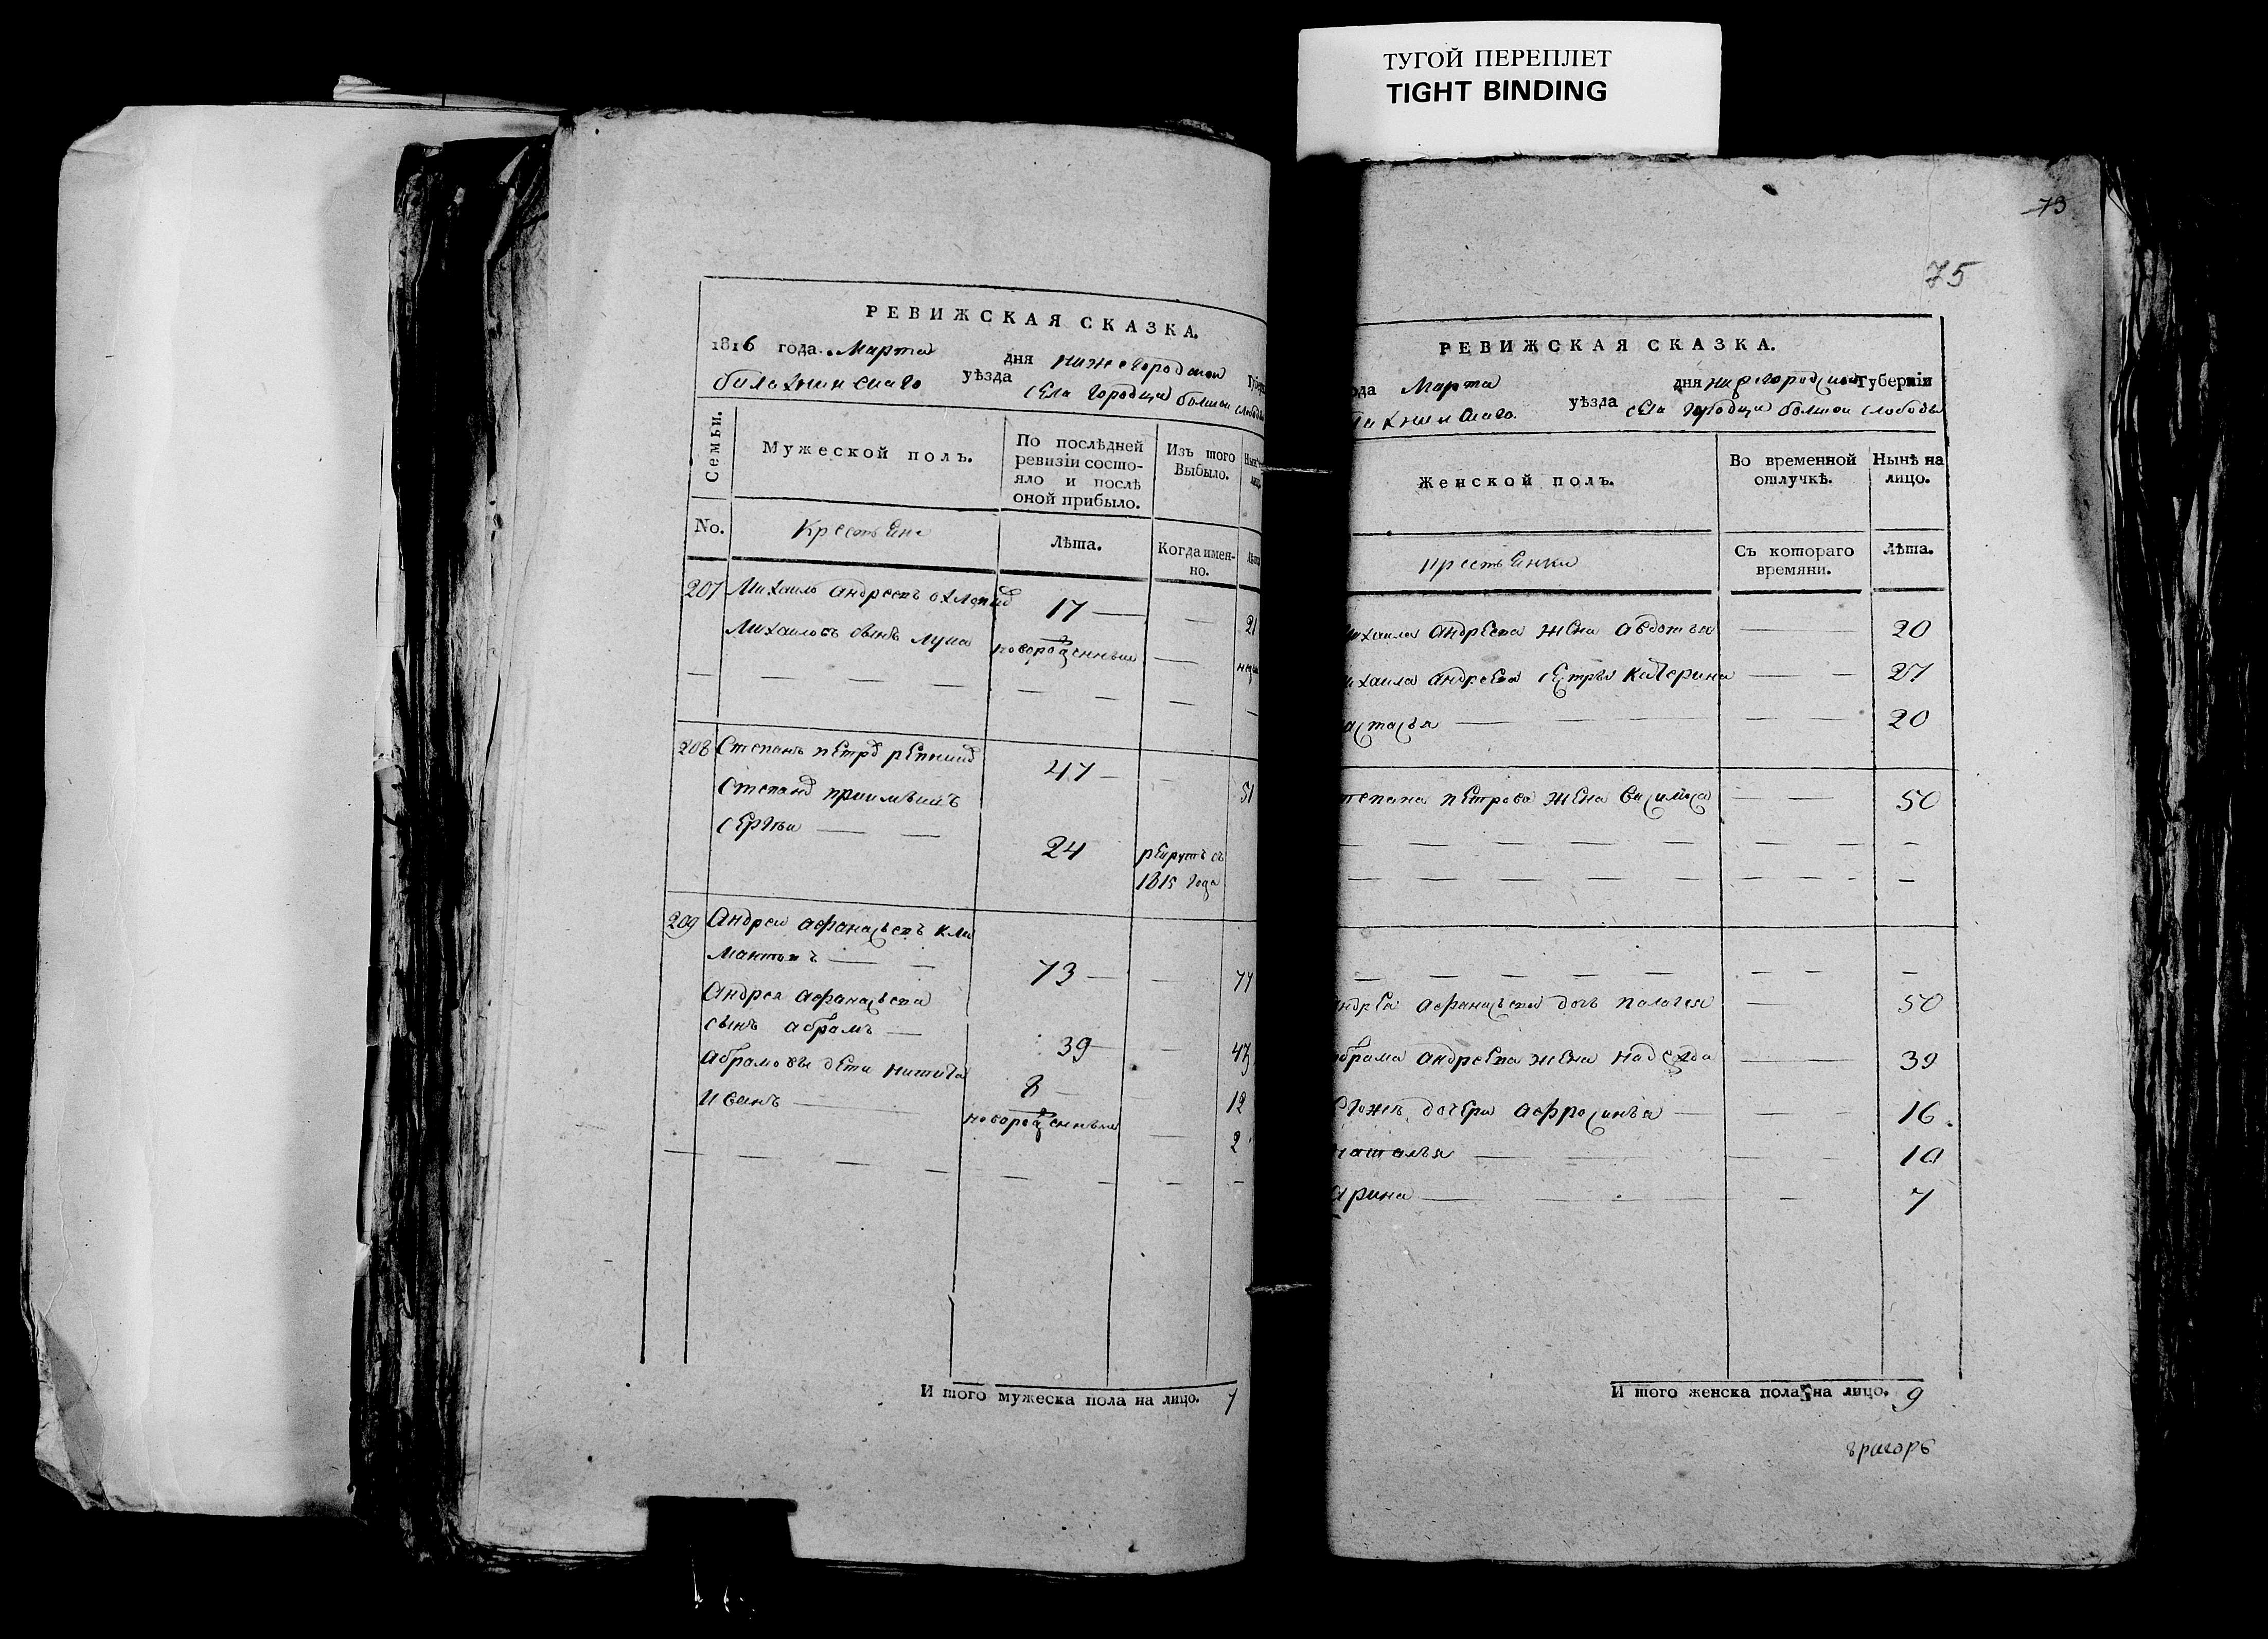 ТУГОЙ ПЕРЕПЛЕТ
TIGHT BINDING
73
75
РЕВИЖСКАЯ СКАЗКА.
1816 года Марта дня нижегородской Губер
балахнинскаго уѣзда села городца болшои слободы
Семьи.
Мужеской полъ.
По послѣдней ревизіи состояло и послѣ оной прибыло.
Изъ того Выбыло.
No.
Крестьяне
Лѣта.
Когда именно.
207 Михаило андреевъ 17 — — 21
Михаиловъ сынъ лука новорожденный —
208 Степанъ петровъ 47 — — 51
Степановъ приимышъ
сергѣи — — 24 рекрутъ въ
1815 года
209 Андреи афанасьевъ кли
мантьевъ — — 73 — — 77
Андрея афанасьева
сынъ абрамъ — 39 — 43
абрамовы дети никита 8 — 12
иванъ — новорожденный — 2
И того мужеска пола на лицо. 7
РЕВИЖСКАЯ СКАЗКА.
ода Марта дня нижегородской Губерніи
лахнинскаго уѣзда села городца болшои слободы
Женской полъ.
Во временной отлучкѣ.
Нынѣ на лицо.
крестьянки
Съ котораго времяни.
Лѣта.
ихаила андреева жена авдотья — — 20
ихаила андреева сестры катерина — — 27
астасья — — — 20
тепана петрова жена василиса — — 50
ндрея афанасьева дочь палагея — 50
брама андреева жена надежда — — 39
евоже дочери афросинья — — 16
наталья — — 10
арина — — 7
И того женска пола на лицо. 9
григоръ